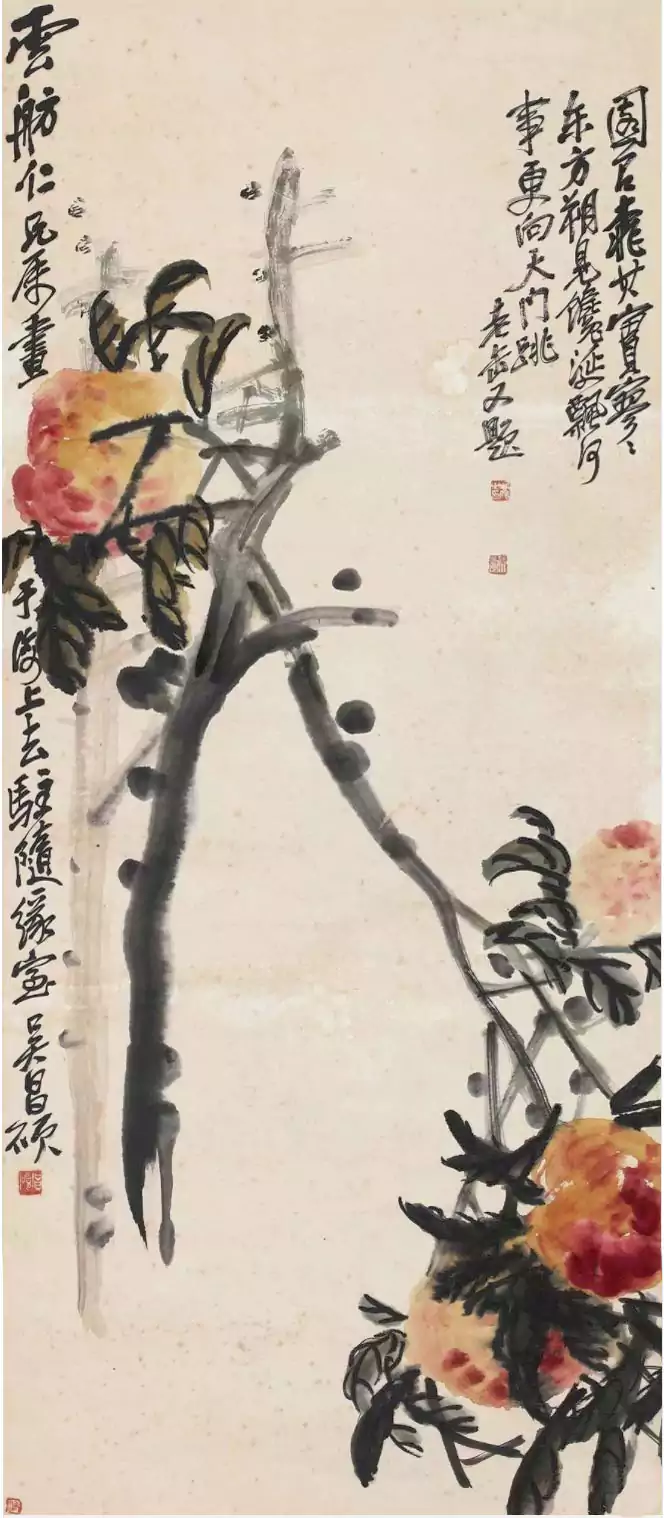 園實寥〻
東方朔見饞涎飄何
事更向天門跳
老缶又題
雲舫仁兄屬畫于滬上去駐隨緣室吳昌碩